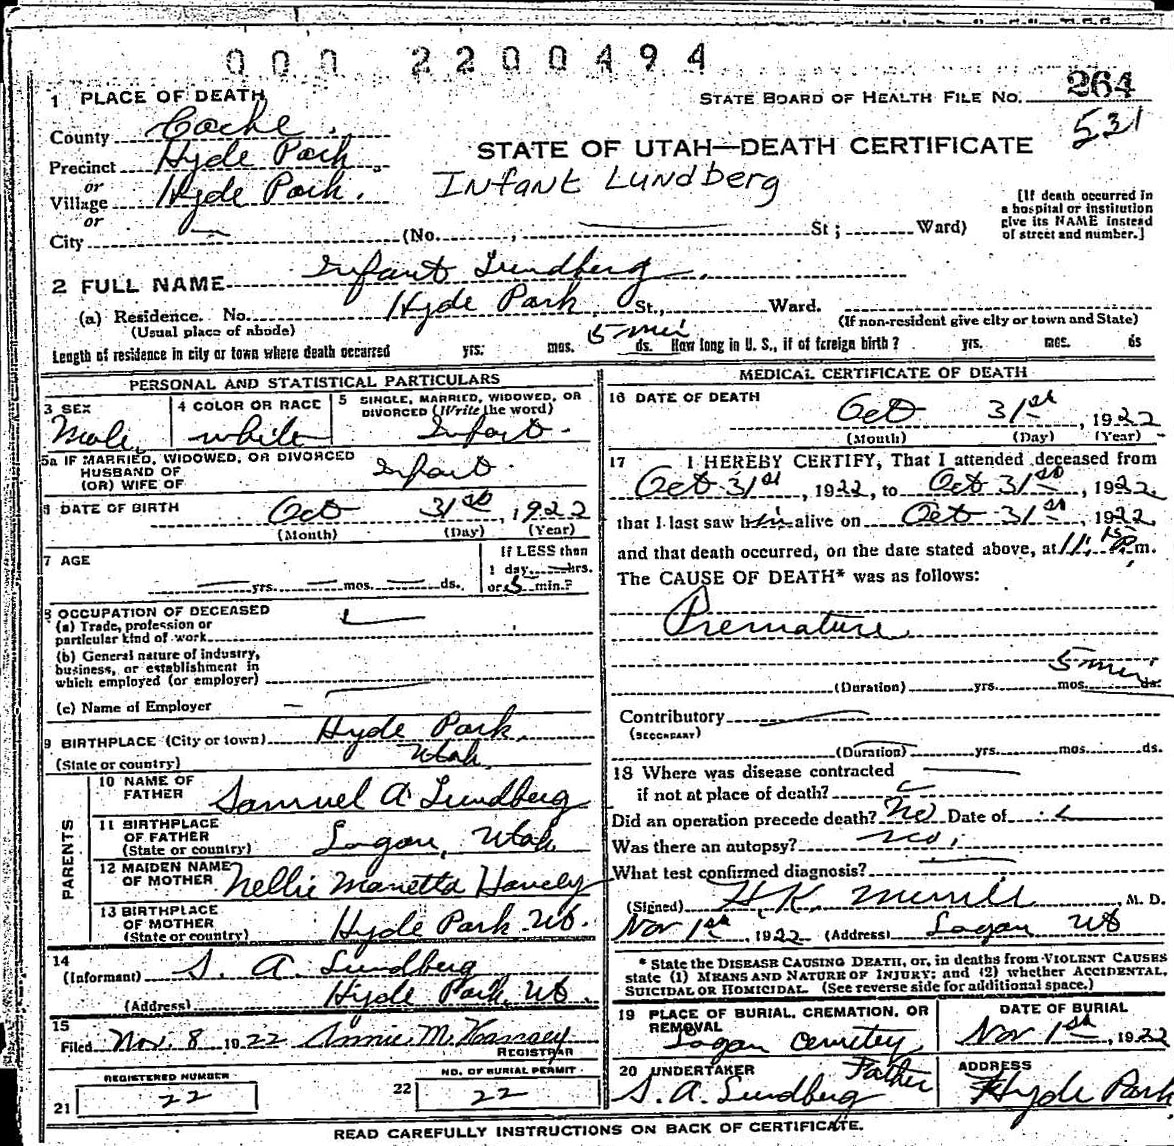 000 2200494
1 PLACE OF DEATH
STATE BOARD OF HEALTH FILE No. 264
531
County Cache
STATE OF UTAH—DEATH CERTIFICATE
Precinct Hyde Park
or
Village Hyde Park.
Infant Lundberg
or
City (No. , St ; Ward)
[If death occurred in
a hospital or institution
give its NAME instead
of street and number.]
2 FULL NAME Infant Lundberg
(a) Residence. No. Hyde Park St., Ward.
(Usual place of abode)
(If non-resident give city or town and State)
Length of residence in city or town where death occurred yrs. mos. 5 min ds. How long in U. S., if of foreign birth? yrs. mos. ds
PERSONAL AND STATISTICAL PARTICULARS
3 SEX
Male
4 COLOR OR RACE
white
5 SINGLE, MARRIED, WIDOWED, OR
DIVORCED (Write the word)
Infant
5a IF MARRIED, WIDOWED, OR DIVORCED
HUSBAND OF
(OR) WIFE OF
Infant
6 DATE OF BIRTH
Oct 31st, 1922
(Month) (Day) (Year)
7 AGE
yrs. mos. ds.
If LESS than
1 day hrs.
or 5 min.?
8 OCCUPATION OF DECEASED
(a) Trade, profession or
particular kind of work
(b) General nature of industry,
business, or establishment in
which employed (or employer)
(c) Name of Employer
9 BIRTHPLACE (City or town) Hyde Park
(State or country) Utah
PARENTS
10 NAME OF
FATHER Samuel A Lundberg
11 BIRTHPLACE
OF FATHER
(State or country) Logan, Utah
12 MAIDEN NAME
OF MOTHER Nellie Manetta
13 BIRTHPLACE
OF MOTHER
(State or country) Hyde Park Ut.
14
(Informant) S. A. Lundberg
(Address) Hyde Park, Ut.
15
Filed Nov. 8 1922 Annie M.
REGISTRAR
REGISTERED NUMBER
21 22
NO. OF BURIAL PERMIT
22 22
MEDICAL CERTIFICATE OF DEATH
16 DATE OF DEATH
Oct 31st, 1922
(Month) (Day) (Year)
17 I HEREBY CERTIFY, That I attended deceased from
Oct 31st, 1922, to Oct 31st, 1922.
that I last saw him alive on Oct 31st, 1922
and that death occurred, on the date stated above, at 11:15 P.m.
The CAUSE OF DEATH* was as follows:
Premature
5 min
(Duration) yrs. mos. ds.
Contributory
(SECONDARY)
(Duration) yrs. mos. ds.
18 Where was disease contracted
if not at place of death?
Did an operation precede death? No Date of
Was there an autopsy? No
What test confirmed diagnosis?
(Signed) H. K. Merrill, M. D.
Nov 1st, 1922 (Address) Logan Ut
* State the DISEASE CAUSING DEATH, or, in deaths from VIOLENT CAUSES
state (1) MEANS AND NATURE OF INJURY; and (2) whether ACCIDENTAL,
SUICIDAL OR HOMICIDAL. (See reverse side for additional space.)
19 PLACE OF BURIAL, CREMATION, OR
REMOVAL
Logan Cemetery
DATE OF BURIAL
Nov 1st, 1922
20 UNDERTAKER Father
S. A. Lundberg
ADDRESS
Hyde Park
READ CAREFULLY INSTRUCTIONS ON BACK OF CERTIFICATE.